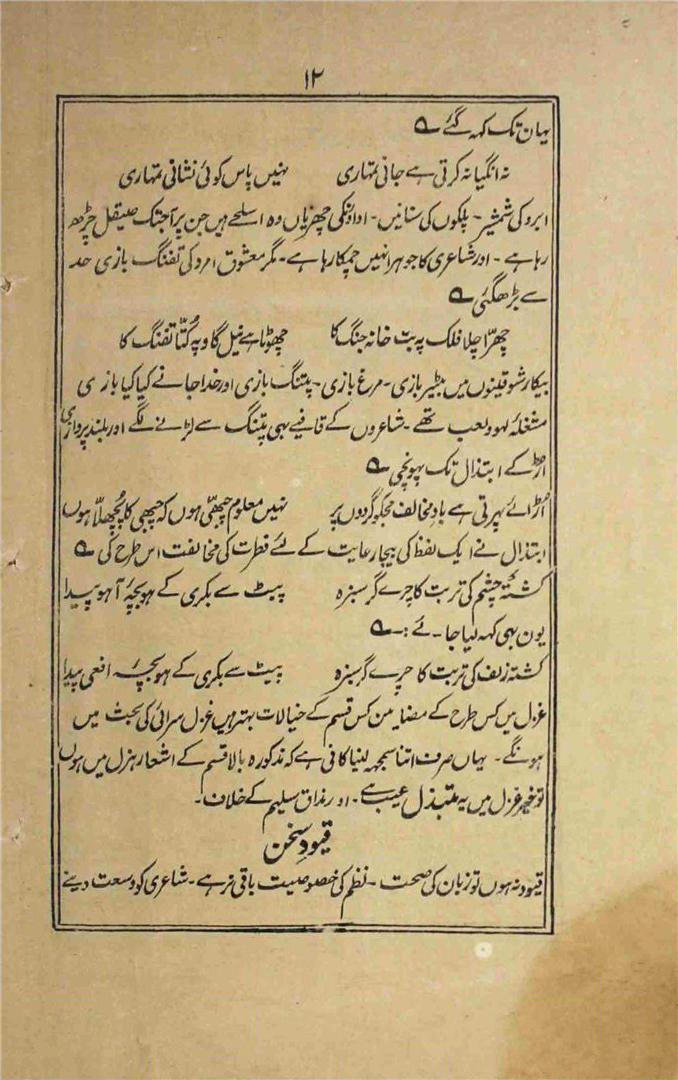 ۱۲
یہان تک کہہ گئے ؎
نہ انگیا نہ کرتی ہے جانی تمہاری نہیں پاس کوئی نشانی تمہاری
ابرو کی شمشیر - پلکوں کی سنانیں - اداؤنکی چھریاں وہ اسلحے ہیں جن پر آجتک صیقل چڑھ
رہا ہے - اور شاعری کا جوہر انہیں چمکا رہا ہے - مگر معشوق امرد کی تفنگ بازی حد
سے بڑھگئی ؎
چھرّا چلا فلک پہ بت خانہ جنگ کا چھوٹا ہے نیل گاو پہ کُتّا تفنگ کا
بیکار شوقینوں میں بٹیر بازی - مرغ بازی - پتنگ بازی اور خدا جانے کیا کیا بازی
مشغلہ لہو ولعب تھے - شاعروں کے قافیے بہی پتنگ سے لڑنے لگے اور بلند پروازی
اڑکے ابتذال تک پہونچی ؎
اُڑائے پہرتی ہے بادِ مخالف مجکو گردوں پر نہیں معلوم چھپّی ہوں کہ چھپی کا پُچھلّا ہوں
ابتذال نے ایک لفظ کی بیجا رعایت کے لئے فطرت کی مخالفت اس طرح کی ؎
کشتۂ چشم کی تربت کا چرے گر سبزہ پیٹ سے بکری کے ہو بچۂ آہو پیدا
یون بہی کہہ لیا جائے :- ؎
کشتہ زلف کی تربت کا چرے گر سبزہ پیٹ سے بکری کے ہو بچۂ افعی پیدا
غزل میں کس طرح کے مضامین کس قسم کے خیالات بہتر ہیں غزل سرائی کی بحث میں
ہونگے - یہاں صرف اتنا سمجہہ لینا کافی ہے کہ مذکورہ بالا قسم کے اشعار ہزل میں ہوں
تو خیر غزل میں یہ مبتذل عیب ہے - اور مذاق سلیم کے خلاف -
قیودِ سخن
قیود نہ ہوں تو زبان کی صحت - نظم کی خصوصیت باقی نرہے - شاعری کو وسعت دینے